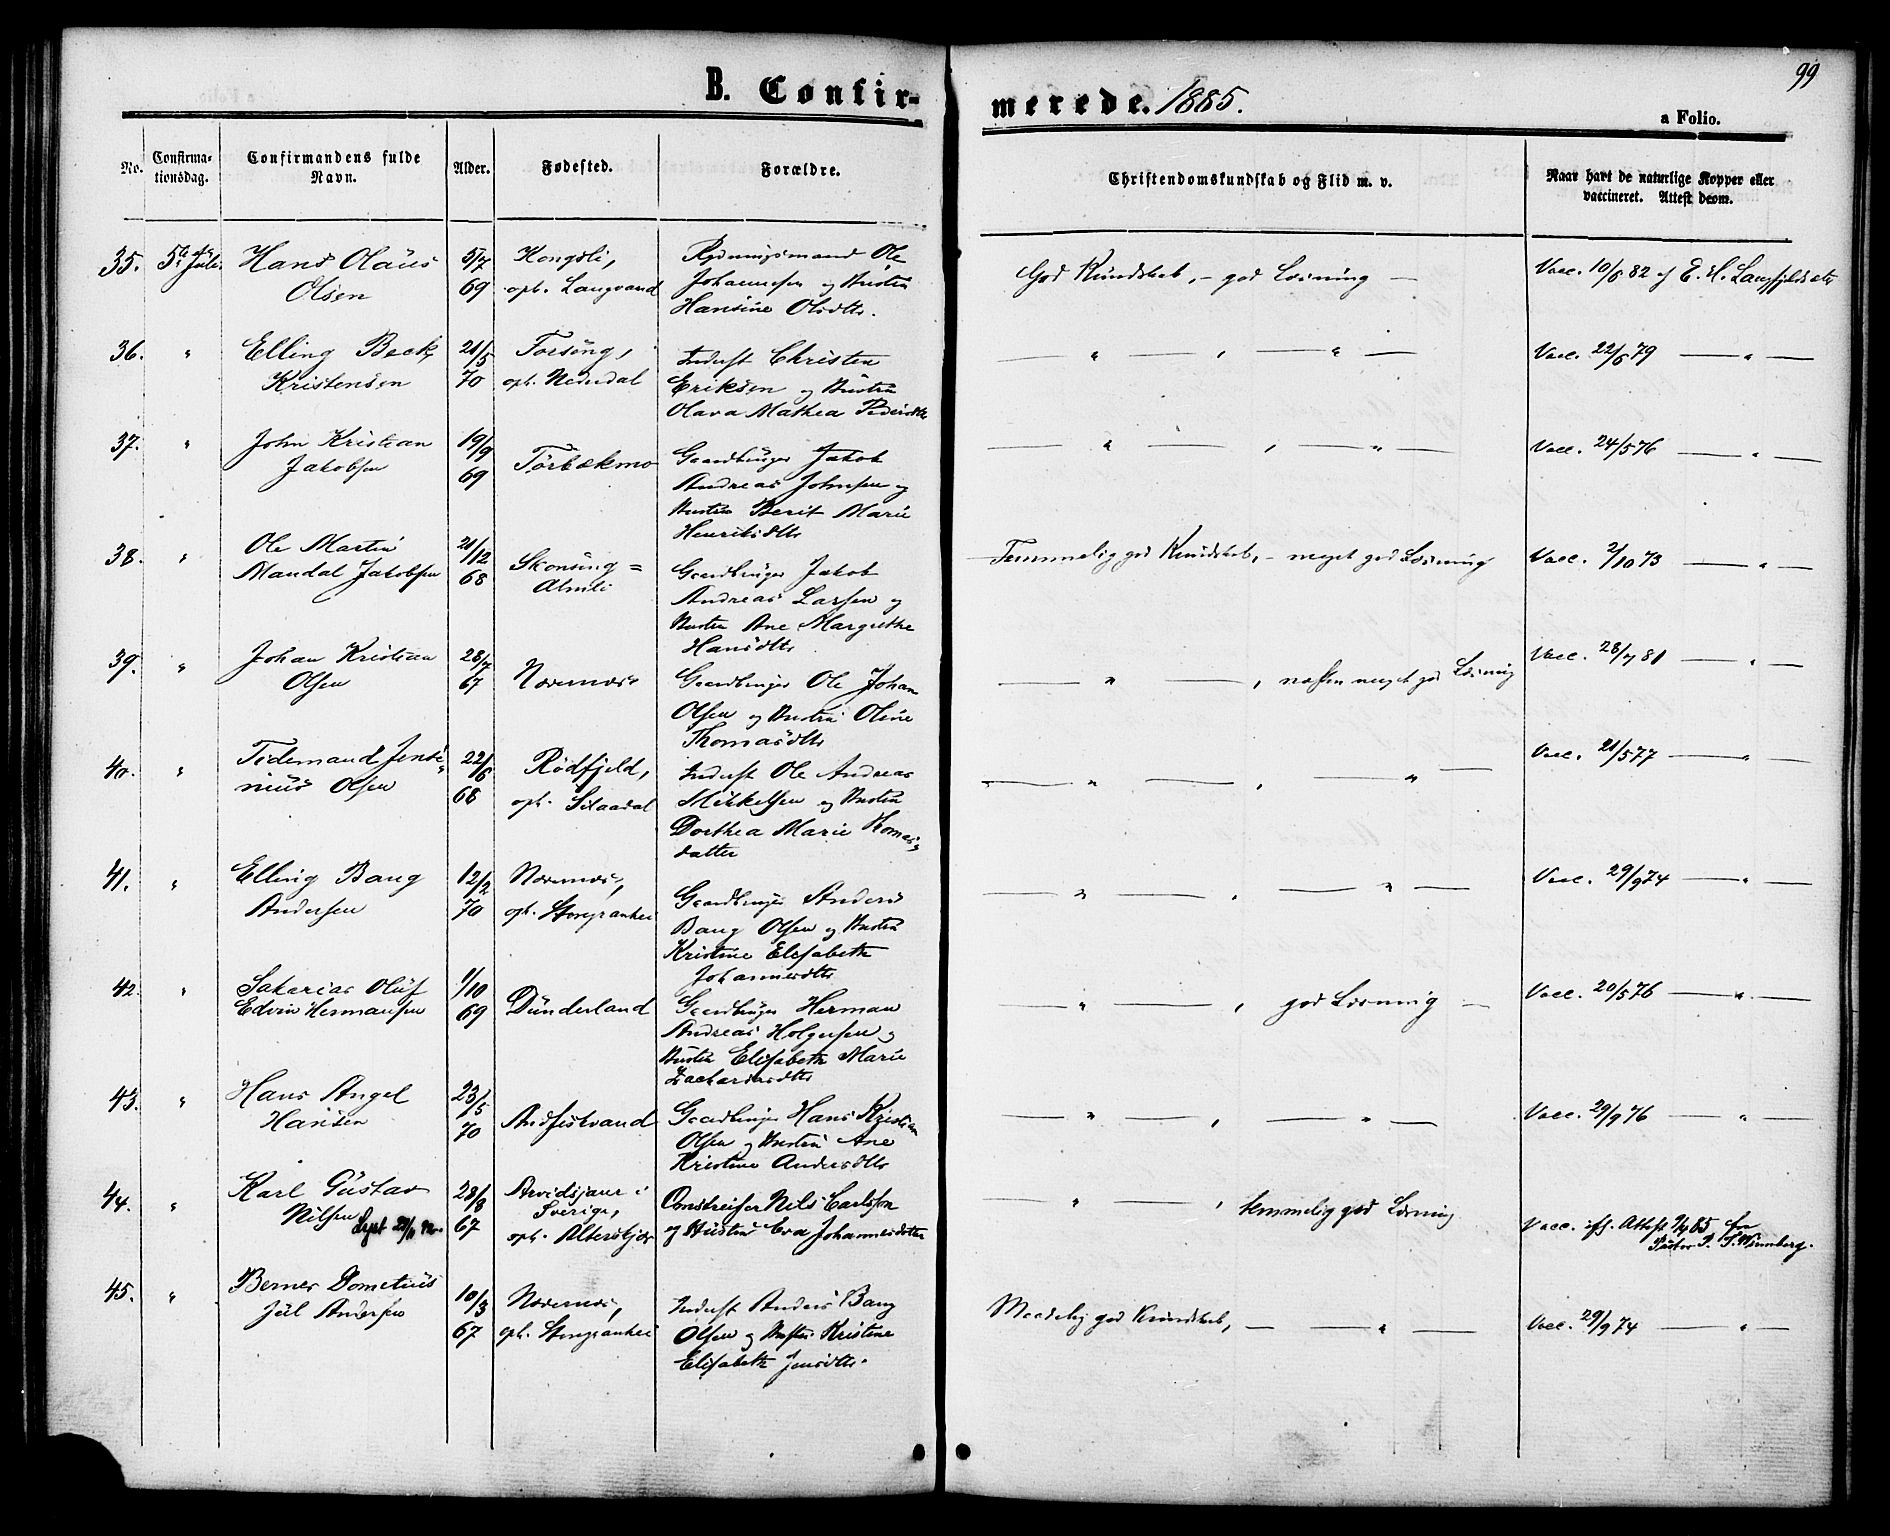 99
B. Confirmerede. 1885.
a Folio.
No. Confirmationsdag. Confirmandens fulde Navn. Alder. Fødested. Forældre. Christendomskundskab og Flid m. v. Naar havt de naturlige Kopper eller vaccineret. Attest derom.
35. 5te Juli Hans Olaus 5/7 Kongsli, Rydningsmand Ole God Kundskab, – god Læsning — Vacc. 10/6 82 af E. H. Langfjeldsæter
Olsen 69 opt. Langvand Johannesen og Hustru
Hansine Olsdtr.
36. " Elling Beck 21/5 Forsøng, Inderst Christen — " — , — " — Vacc. 22/6 79 — " —
Kristensen 70 opt. Nederdal Eriksen og Hustru
Olava Mathea Pedersdtr
37. " John Kristian 19/9 Tørbækmo Gaardbruger Jakob — " — , — " — Vacc. 24/5 76 — " —
Jakobsen 69 Andreas Johnsen og
Hustru Berit Marie
Henriksdtr
38. " Ole Martin 21/12 Skonseng = Gaardbruger Jakob Temmelig god Kundskab, – meget god Læsning Vacc. 2/10 73 — " —
Mandal Jakobsen 68 Almli Andreas Larsen og
Hustru Ane Margrethe
Hansdtr
39. " Johan Kristian 28/7 Nævernæs Gaardbruger Ole Johan — " — , næsten meget god Læsning Vacc. 28/7 81 — " —
Olsen 67 Olsen og Hustru Oline
Thomasdtr
40. " Tidemand Jense= 22/6 Rødfjeld, Inderst Ole Andreas — " — , — " — Vacc. 21/5 77 — " —
nius Olsen 68 opt. Mikkelsen og Hustru
Dorthea Marie Thomas=
datter
41. " Elling Bang 12/2 Nævernæs, Gaardbruger Anders — " — , — " — Vacc. 29/9 74 — " —
Andersen 70 opt. Storgranhei Bang Olsen og Hustru
Kristine Elisabeth
Johannesdtr
42. " Sakarias Oluf 1/10 Dunderland Gaardbruger Herman — " — , god Læsning — Vacc. 20/5 76 — " —
Edvin Hermansen 69 Andreas Holgersen og
Hustru Elisabeth Marie
Zachariasdtr
43. " Hans Angel 23/5 Andfiskvand Gaardbruger Hans Kristian — " — , — " — Vacc. 29/9 76 — " —
Hansen 70 Olsen og Hustru Ane
Kristine Andersdtr
44. " Karl Gustav 28/8 Arvidsjaur i Omstreifer Nils Carlsson — " — , temmelig god Læsning Vacc. ifl. Attest 85 fra
Nilsen 67 Sverige, og Hustru Eva Johannesdatter Pastor P.
opt.
45. " Berner Dometius 10/3 Nævernæs, Inderst Anders Bang Maadelig god Kundskab, — " — Vacc. 29/9 74 — " —
Jul Andersen 67 opt. Storgranhei Olsen og Hustru Kristine
Elisabeth Jensdtr.